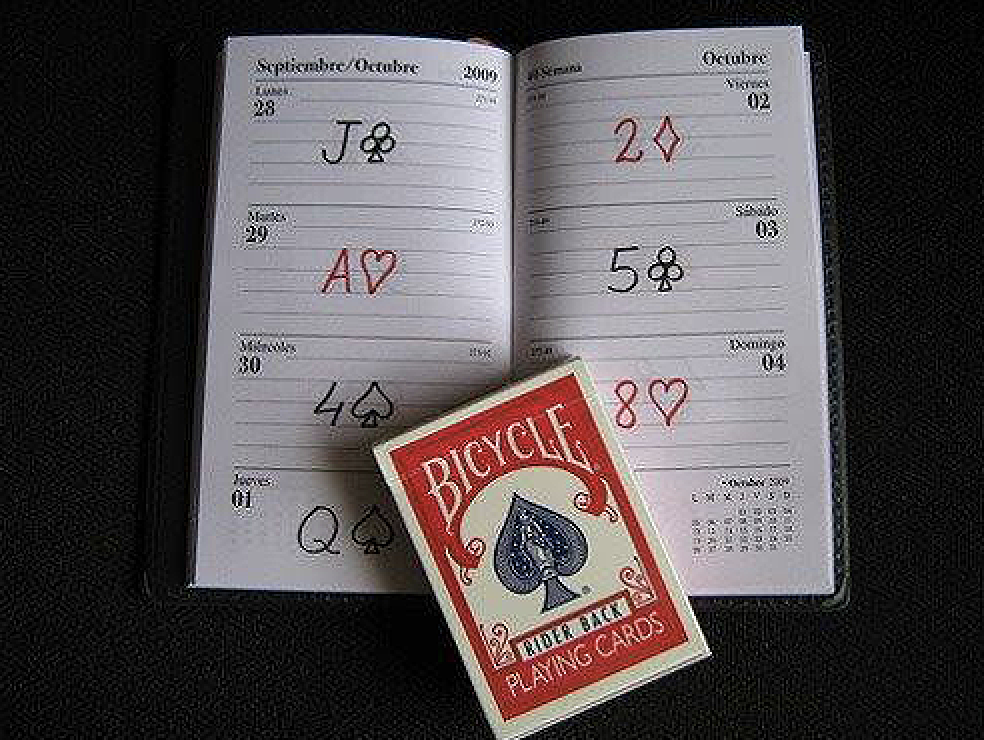 Septiembre/Octubre 2009
Lunes
28
J♣
Martes
29
A♥
Miércoles
30
4♠
Jueves
01
Q♠
Semana Octubre
Viernes
02
2♦
Sábado
03
5♣
Domingo
04
8♥
Octubre 2009
L M X J V S D
BICYCLE
RIDER BACK
PLAYING CARDS